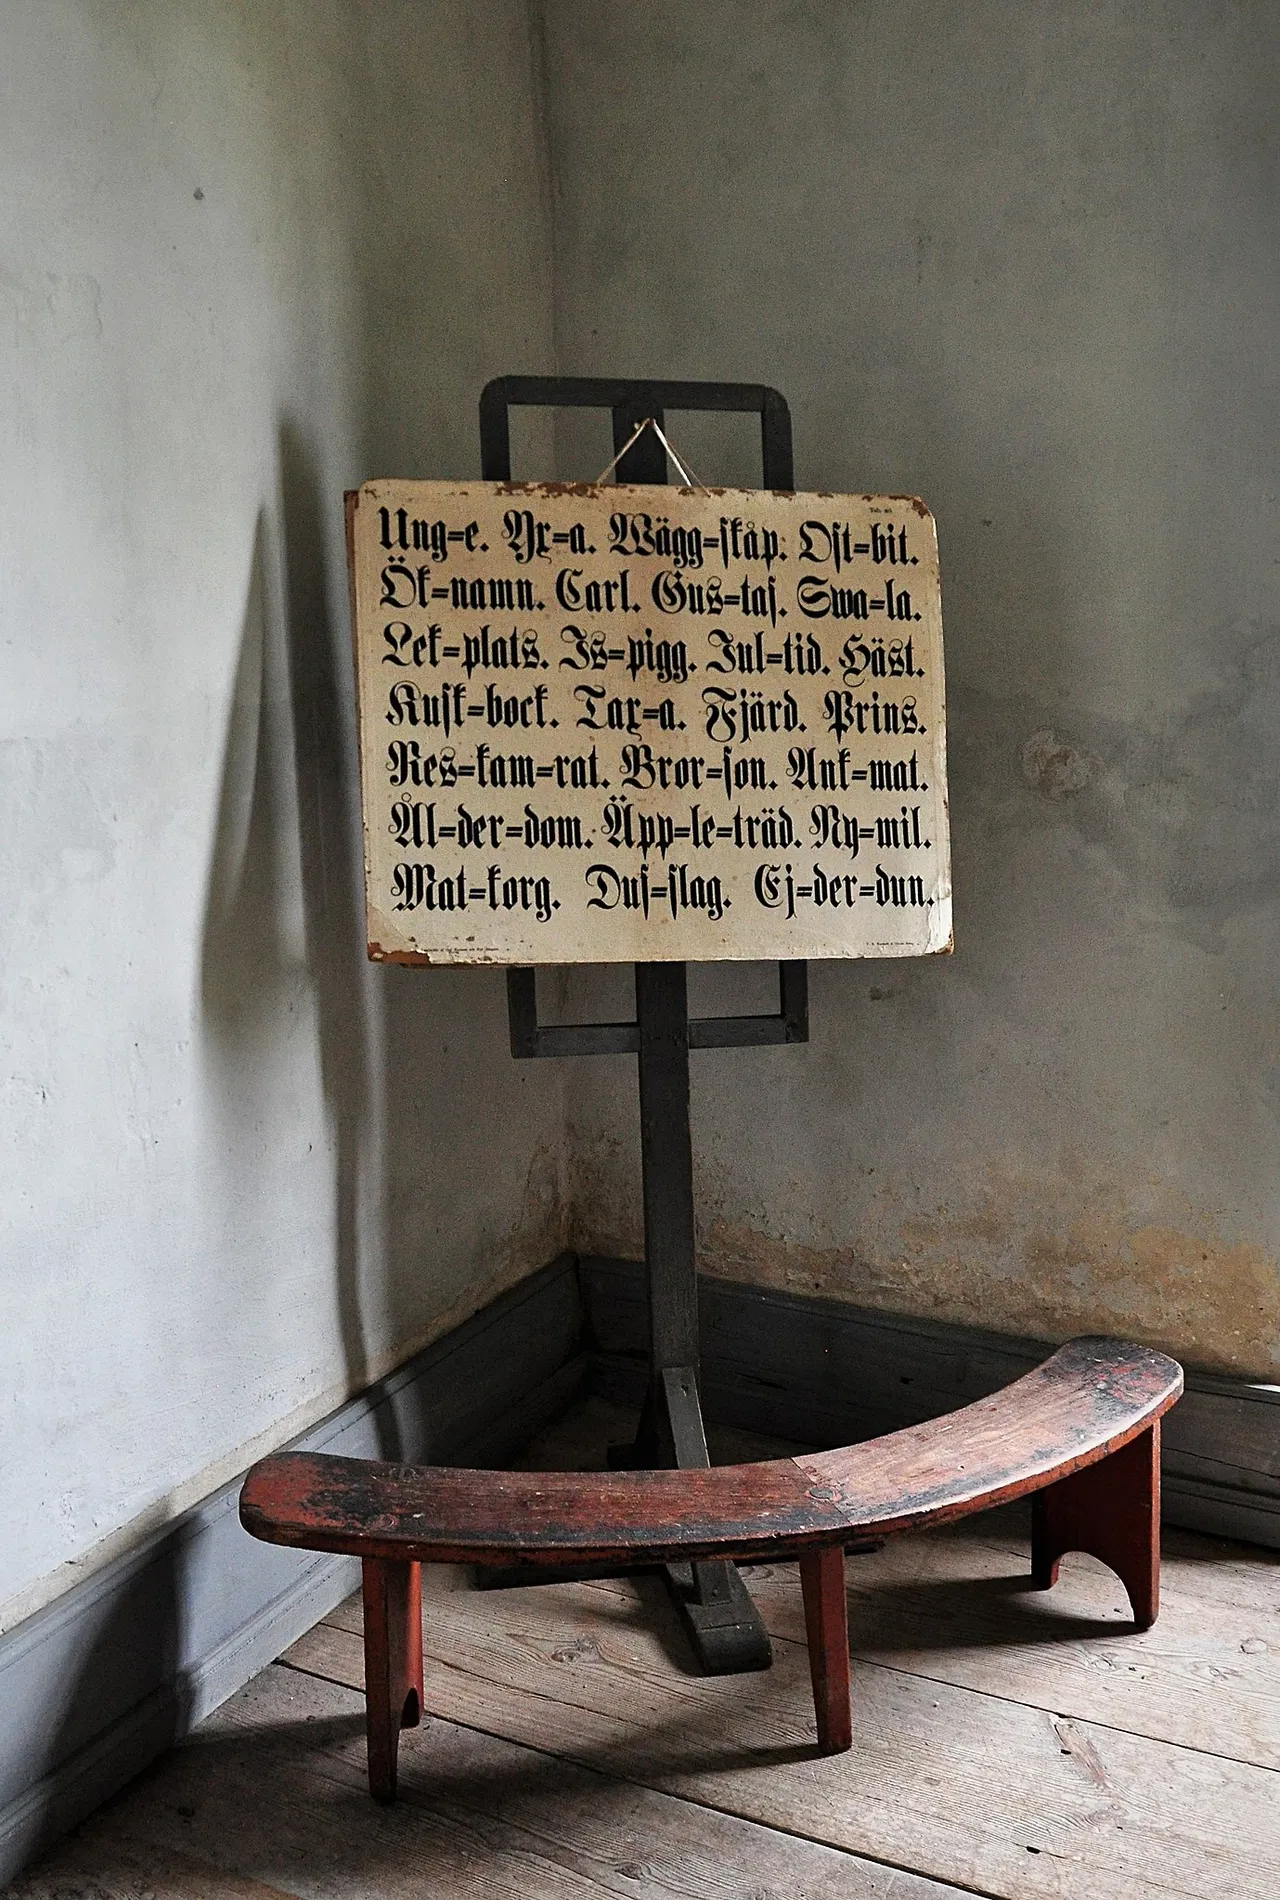 Ung=e. Yx=a. Wägg=skåp. Ost=bit.
Ök=namn. Carl. Gus=taf. Swa=la.
Lek=plats. Is=pigg. Jul=tid. Häst.
Kusk=bock. Tax=a. Fjärd. Prins.
Res=kam=rat. Bror=son. Ank=mat.
Ål=der=dom. Äpp=le=träd. Ny=mil.
Mat=korg. Duf=slag. Ej=der=dun.